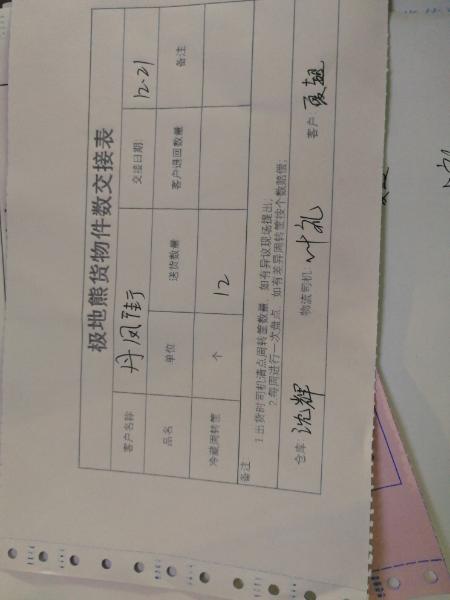 极地熊货物件数交接表
客户名称 丹凤街 交接日期: 12.21
品名 单位 送货数量 客户退回数量 备注
冷藏周转筐 个 12
备注
1.出货时司机清点周转筐数量,如有异议现场提出;
2.每周进行一次盘点,如有差异周转筐按个数赔偿;
仓库: 沈辉 物流司机: 叶礼 客户: 夏超